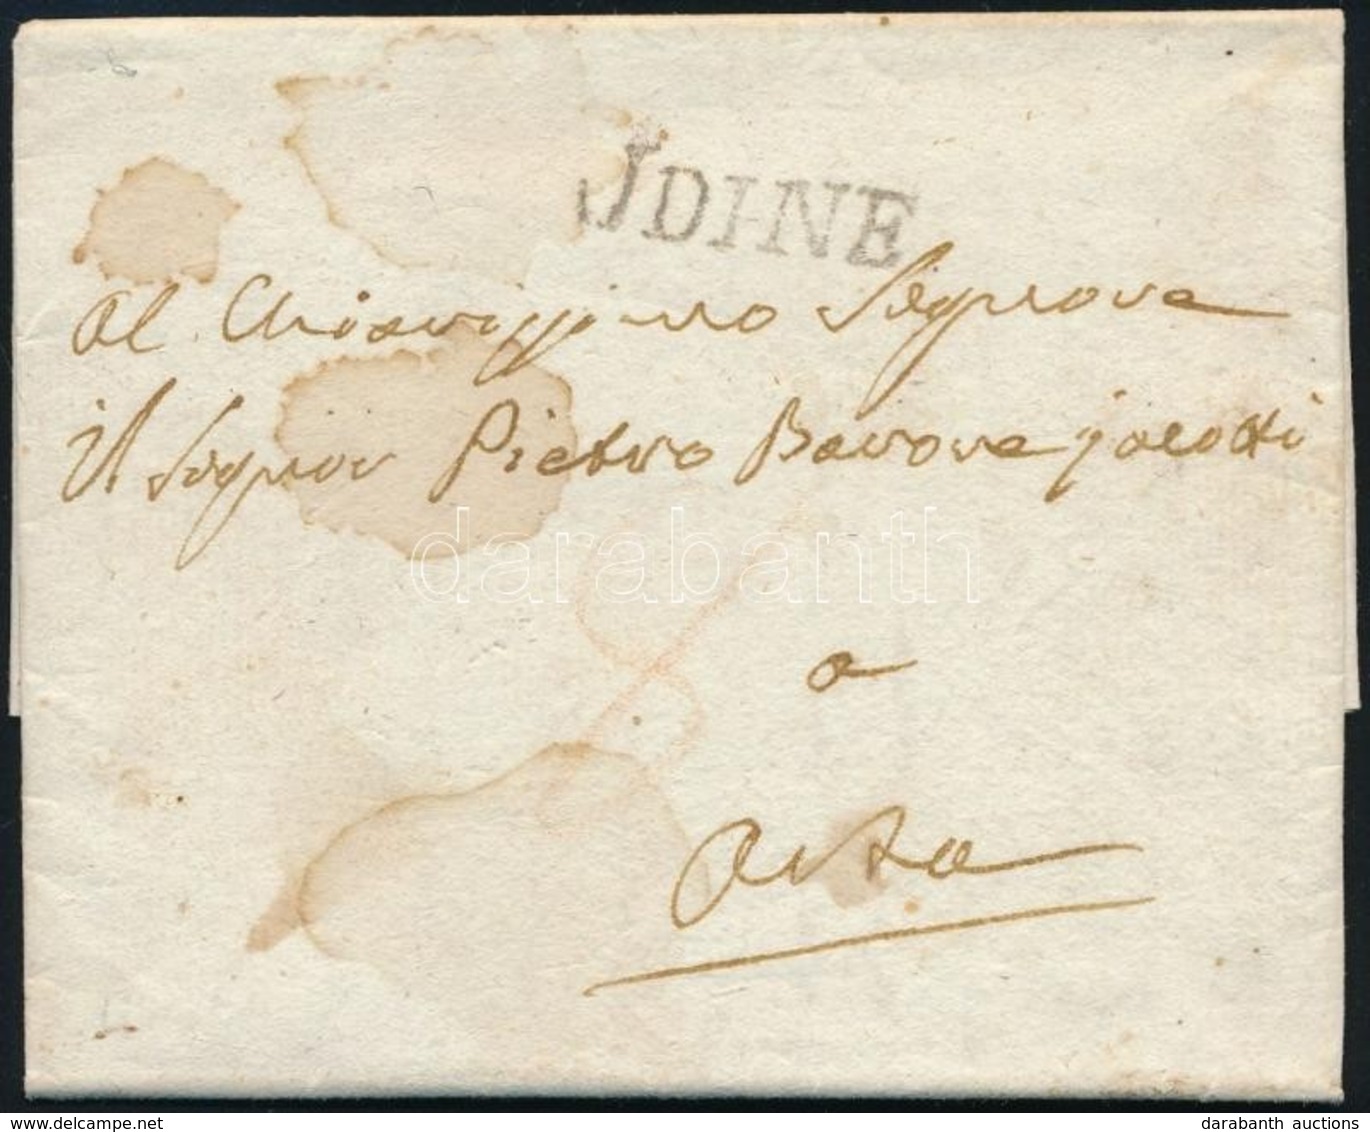 delcampe.net
UDINE
Al Chiarissimo Signore
il Signor Pietro Barone
darabanth
a
Arta
darabanth auctions